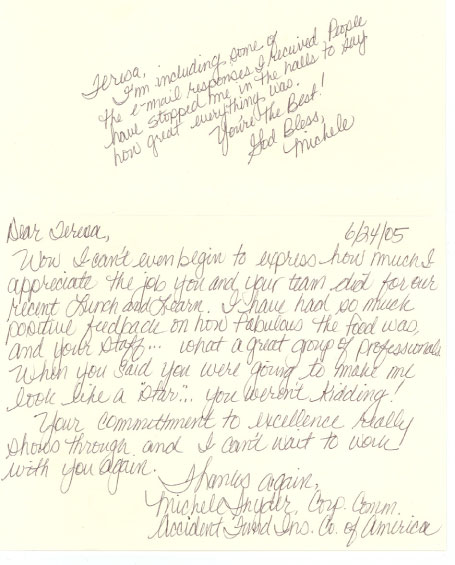 Teresa,
I'm including some of
the e-mail responses I received. People
have stopped me in the halls to say
how great everything was.
You're the Best!
God Bless,
Michele
Dear Teresa,
6/24/05
Wow I can't even begin to express how much I
appreciate the job you and your team did for our
recent Lunch and Learn. I have had so much
positive feedback on how fabulous the food was,
and your staff... what a great group of professionals.
When you said you were going to make me
look like a "star"... you weren't kidding!
Your committment to excellence really
shows through and I can't wait to work
with you again.
Thanks again,
Michele Snyder, Corp. Comm.
Accident Fund Ins. Co. of America